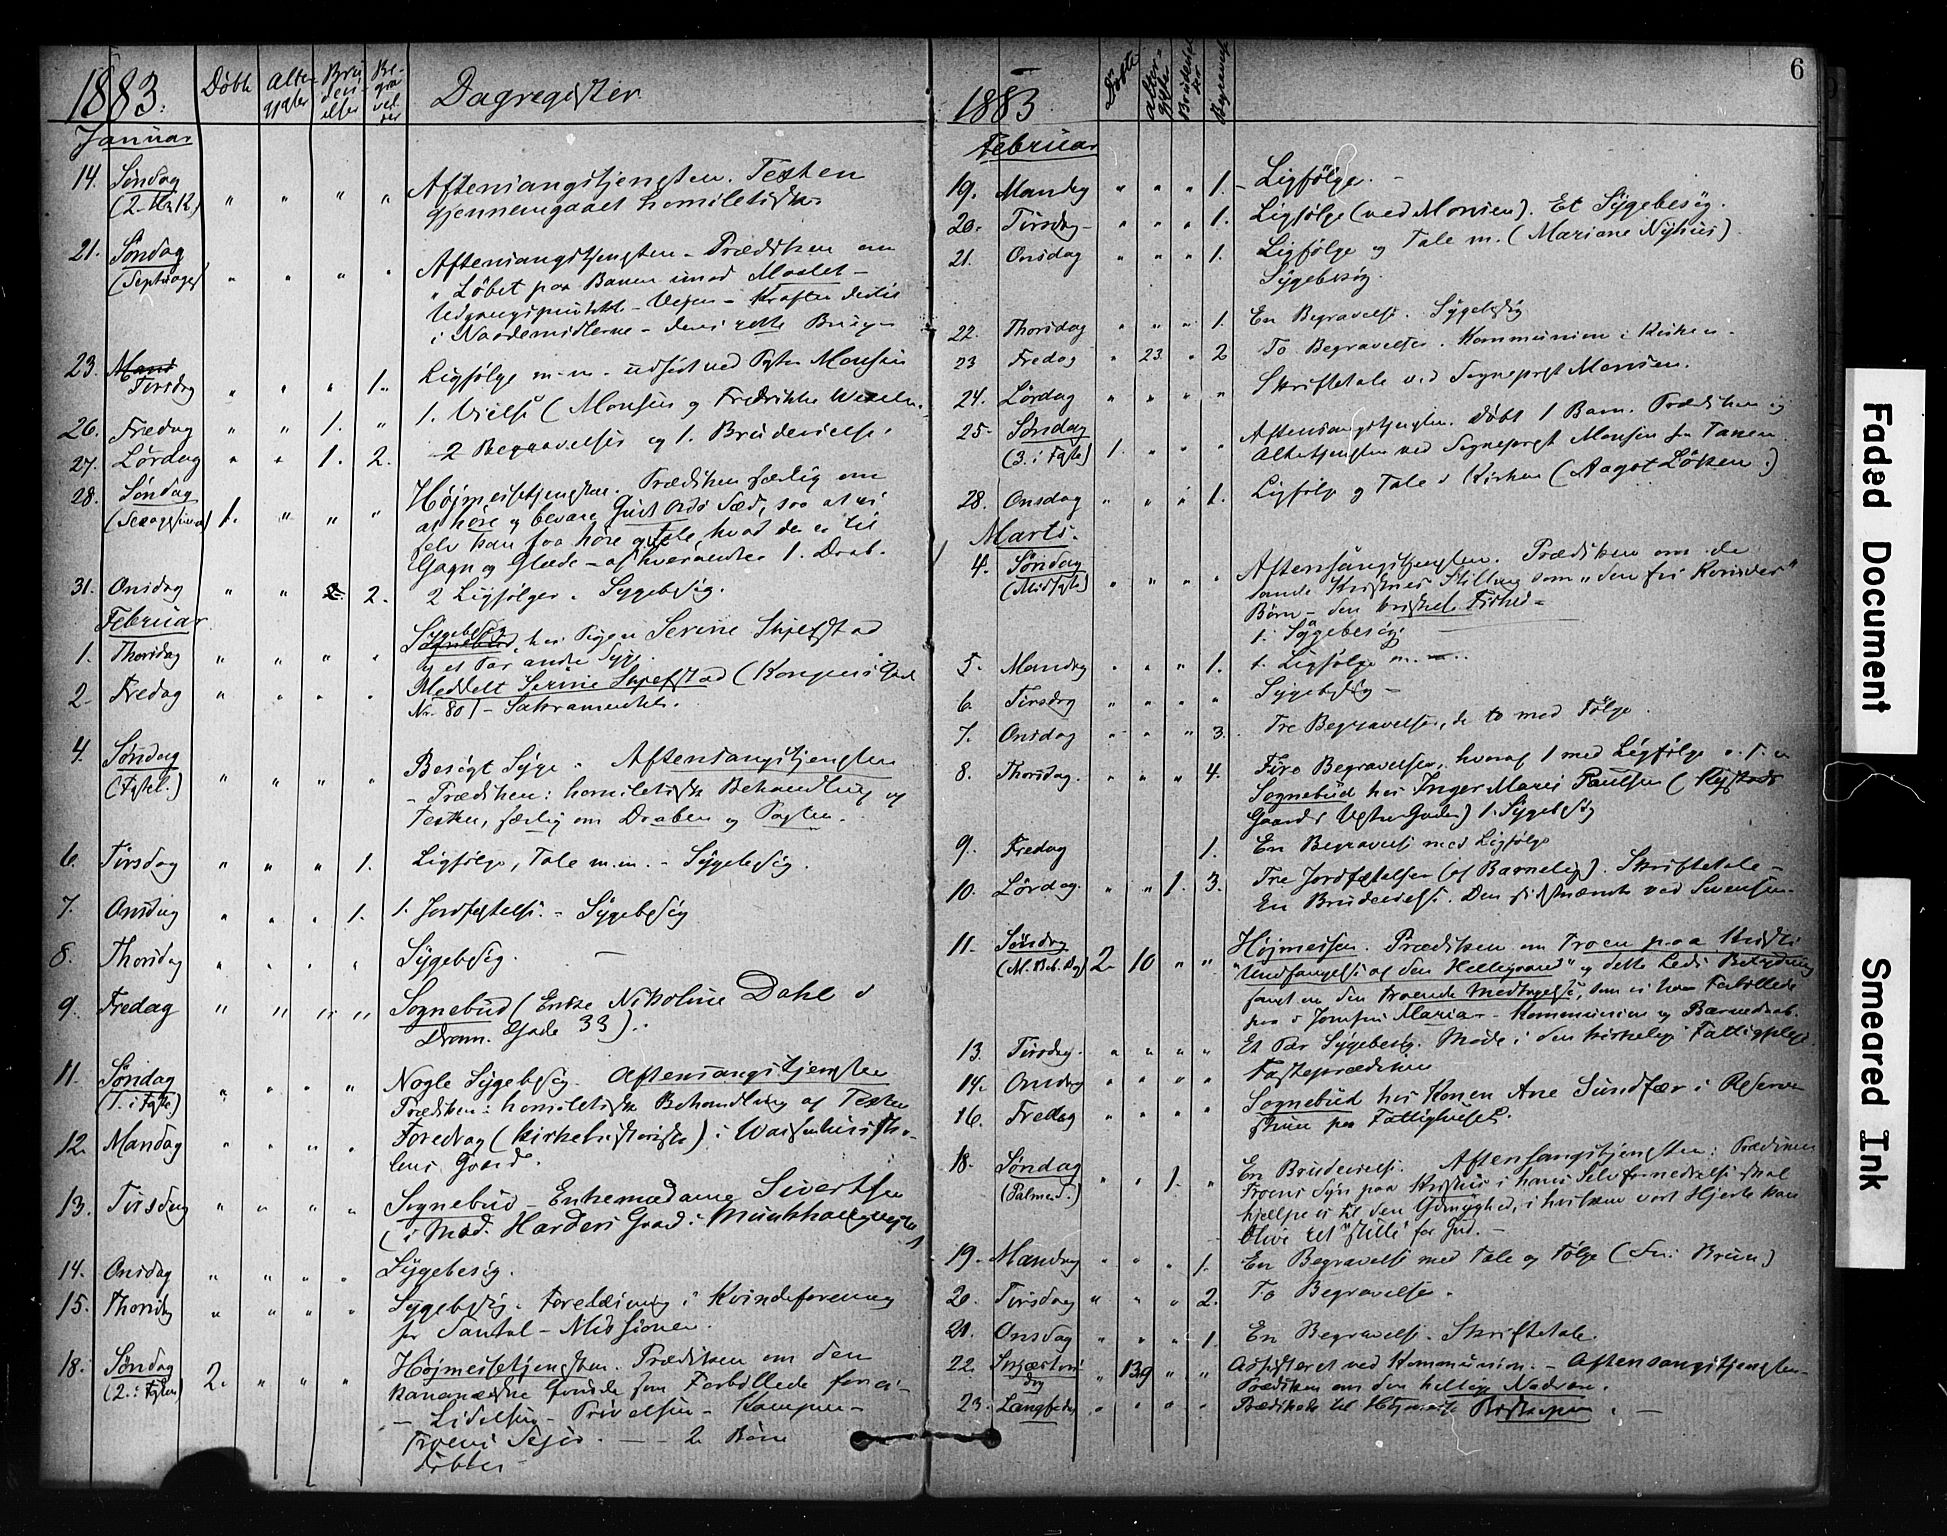 1883. Döbte Alter- Bru Be-
gjgter devi- gra
elser vel-
ser
Dagregister
Januar
14. Söndag " " " " Aftensangstjengsten. Texten
(2. H 3 K.) gjennemgaaet homiletisk
21. Söndag " " " " Aftensangstjengsten - Prædiken om
(Septuages) "Löbet paa Banen imod Maalet -
Udgangspunktet - Vejen - Kraften dertil
i Naademidlerne - deres rette Brug -
23. Mand
Tirsdag " " " 1. Ligfölge m. m. udfört ved Pastor Monsen
26. Fredag " " 1. " 1. Vielse (Monsen og Fredrikke
27. Lördag " " 1. 2. 2 Begravelser og 1. Brudevielse.
28. Söndag Höjmessetjengsten. Prædiken særlig om
(Sexagesima) 1. " " " at höre og bevare Guds Ords Sæd, saa at vi
selv kan faa höre og tale, hvad der er til
Gagn og Glæde - af hverandre 1. Daab.
31. Onsdag " " 2. 2. 2 Ligfölger. Sygebesög.
Februar
1. Thorsdag " " " " Sygebesög hos Pigen Serine Skjefstad
og et Par andre Syge.
2. Fredag " " " " Meddelt Serine Skjefstad (Kongens Gad
Nr. 80) - Sakramentet.
4. Söndag Besögt Syge. Aftensangstjengsten
(Fastel.) " " " " - Prædiken: homiletisk Behandling og
Texten, særlig om Daaben og Fasten.
6. Tirsdag " " " 1. Ligfölge, Tale m.m. - Sygebesög.
7. Onsdag " " " 1. 1. Jordfestelse. - Sygebesög
8. Thorsdag " " " " Sygebesög. -
9. Fredag " " " " Sognebud (Enke Nikoline Dahl i
Dronn. Gade 33).
11. Söndag Nogle Sygebesög. Aftensangstjengsten
(1. i Faste.) " " " " Prædiken: homiletisk Behandling af Texten
12. Mandag " " " " Foredrag (kirkehistoriske) i Waisenhusstif-
lens Gaard.
13. Tirsdag " " " " Sognebud - Enkemadame Sivertsen
(i Mad. Harders Gaard i Munkhaugveiten)
14. Onsdag " " " " Sygebesög.
15. Thorsdag " " " " Sygebesög. Forelæsning i Kvindeforening
for Santal-Missionen.
18. Söndag 2. " " " Höjmessetjengsten. Prædiken om den
(2. i Fasten) kananæiske Qvinde som Forbillede for os -
- Lidelsen - Prövelsen - Kampen -
Troens Sejer. - - 2 Börn
Döbtes -
1883 Döbte Alter-
gjgter Brudevel
ser Begravels 6
Februar
19. Mandag " " " 1. - Ligfölge. -
20. Tirsdag - " " " 1. Ligfölge (ved Monsen). Et Sygebesög.
21. Onsdag " " " 1. Ligfölge og Tale m. (Mariane Nyhus).
Sygebesög.
22. Thorsdag " " " 1. En Begravelse. Sygebesög
23 Fredag " 23 " 2 To Begravelser. Kommunion i Kirken.
24. Lördag " " " " Skriftetale ved Sogneprest Monsen.
25. Söndag Aftensangstjengsten. Döbt 1 Barn. Prædiken og
(3. i Faste) 1. " " " Altertjengsten ved Sogneprest Monsen fra Tanen
28. Onsdag " " " 1. Ligfölge og Tale i Kirken (Aagot Löken.)
Marts.
4. Söndag Aftensangstjengsten. Prædiken om de
(Midfaste) " " " " sande Kristnes Stilling som "den fri Kvindes"
Börn - den kristel. Frihed -
1. Sygebesög.
5. Mandag " " " 1. 1. Ligfölge m. m..
6. Tirsdag " " " " Sygebesög -
7. Onsdag " " " 3. Tre Begravelser, de to med Fölge.
8. Thorsdag. " " " 4. Fire Begravelser, hvoraf 1 med Ligfölge o. s. v.
Sognebud hos Inger Marie Paulsen (Rystads
Gaard i Vestre Gaden) 1. Sygebesög
9. Fredag 1. En Begravelse med Ligfölge
10. Lördag. " " 1. 3. Tre Jordfæstelser (af Barnelig). Skriftetale -
En Brudevielse. Den sidstnævnte ved Svensen.
11. Söndag Höjmessen. Prædiken om Troen paa Kristi
(M. Beb. Dag) 2. 10 " " "Undfangelse af den Helligaand" og dette Leds Betydning
samt om den troende Modtagelse, som vi have Forbillede
paa i Jomfru Maria - Kommunion og Barnedaab.
13. Tirsdag. " " " " Et Par Sygebesög. Möde i den kirkelige Fattigpleje.
14. Onsdag " " " " Fasteprædiken
16. Fredag " " " " Sognebud hos Konen Ane Sundfær i Reserve
stuen paa Fattighuset.
18. Söndag En Brudevielse. Aftensangstjengsten: Prædiken
(Palmes.) " " 1. " Troens Syn paa Kristus i hans Selvfornedrelse skal
hjælpe os til den Ydmyghed, i hvilken vort Hjerte kan
blive ret "stille" for Gud. -
19. Mandag " " " 1. En Begravelse med Tale og Fölge (Frk. Brun)
20. Tirsdag " " " 2. To Begravelser.
21. Onsdag " " " 1. En Begravelse. Skriftetale.
22. Skjærtors
dag " 139 " " Assisteret ved Kommunion. - Aftensangstjengsten -
Prædiken om den hellige Nadvere.
23. Langfredag " " " " Prædikede til Höjmesse Biskopen. -
Faded Document
Smeared Ink